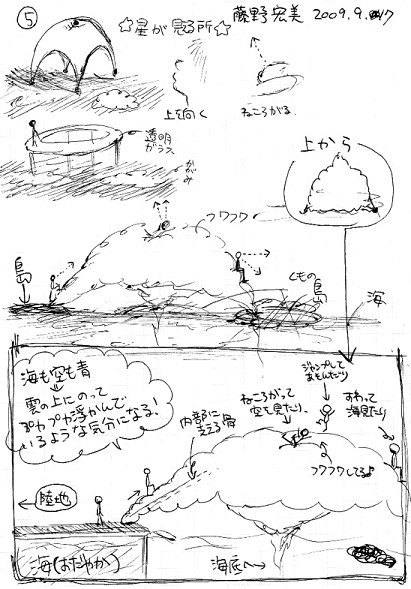 ⑤
☆星が見る所☆
藤野宏美 2009.9.17
上を向く
ねころがる
透明
ガラス
かがみ
上から
フワフワ
島
くもの
島
海
海も空も青
雲の上にのって
プカプカ浮かんで
いるような気分になる!
内部に
支える骨
ねころがって
空を見たり、
ジャンプして
あそんだり
すわって
海見たり
フワフワしてる♪
陸地
海(おだやか)
海底へ